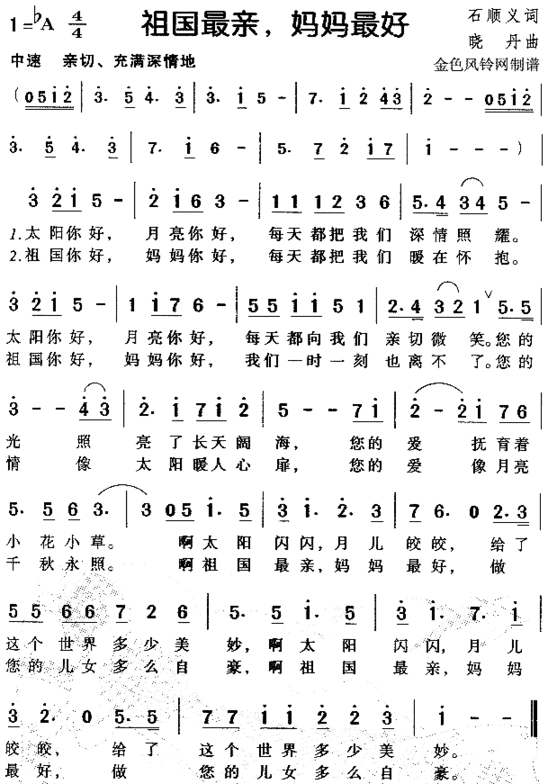 1=♭A 4/4 祖国最亲，妈妈最好 石顺义词
晓丹曲
中速 亲切、充满深情地 金色风铃网制谱
(0512 | 3. 5 4. 3 | 3 - - 5 - | 7. 1 2 43 | 2 - - 0512 |
3. 5 4. 3 | 7. 1 6 - | 5. 7 2 17 | 1 - - - )
3 21 5 - | 2 16 3 - | 11 11 2 3 6 | 5. 4 34 5 - |
1.太阳你好， 月亮你好， 每天都把我们 深情照 耀。
2.祖国你好， 妈妈你好， 每天都把我们 暖在怀 抱。
3 21 5 - | 1 17 6 - | 55 11 5 1 | 2. 4 32 1 ∨ 5. 5 |
太阳你好， 月亮你好， 每天都向我们 亲切微 笑。您的
祖国你好， 妈妈你好， 我们一时一刻 也离不 了。您的
3 - - 43 | 2. 1 71 2 | 5 - - 71 | 2 - 21 76 |
光 照 亮了长天阔 海， 您的 爱 抚育着
情 像 太阳暖人心 扉， 您的 爱 像月亮
5. 5 6 3. | 3 05 1. 5 | 3 1. 2. 3 | 7 6. 0 2. 3 |
小花小草。 啊太阳 闪闪，月儿 皎皎， 给了
千秋永照。 啊祖国 最亲，妈妈 最好， 做
55 66 7 2 6 | 5. 5 1. 5 | 3 1. 7. 1 |
这个世界多少美 妙，啊太阳 闪闪，月儿
您的儿女多么自 豪，啊祖国 最亲，妈妈
3 2. 0 5. 5 | 77 11 2 2 3 | 1 - - ‖
皎皎， 给了 这个世界多少美 妙。
最好， 做 您的儿女多么自 豪。